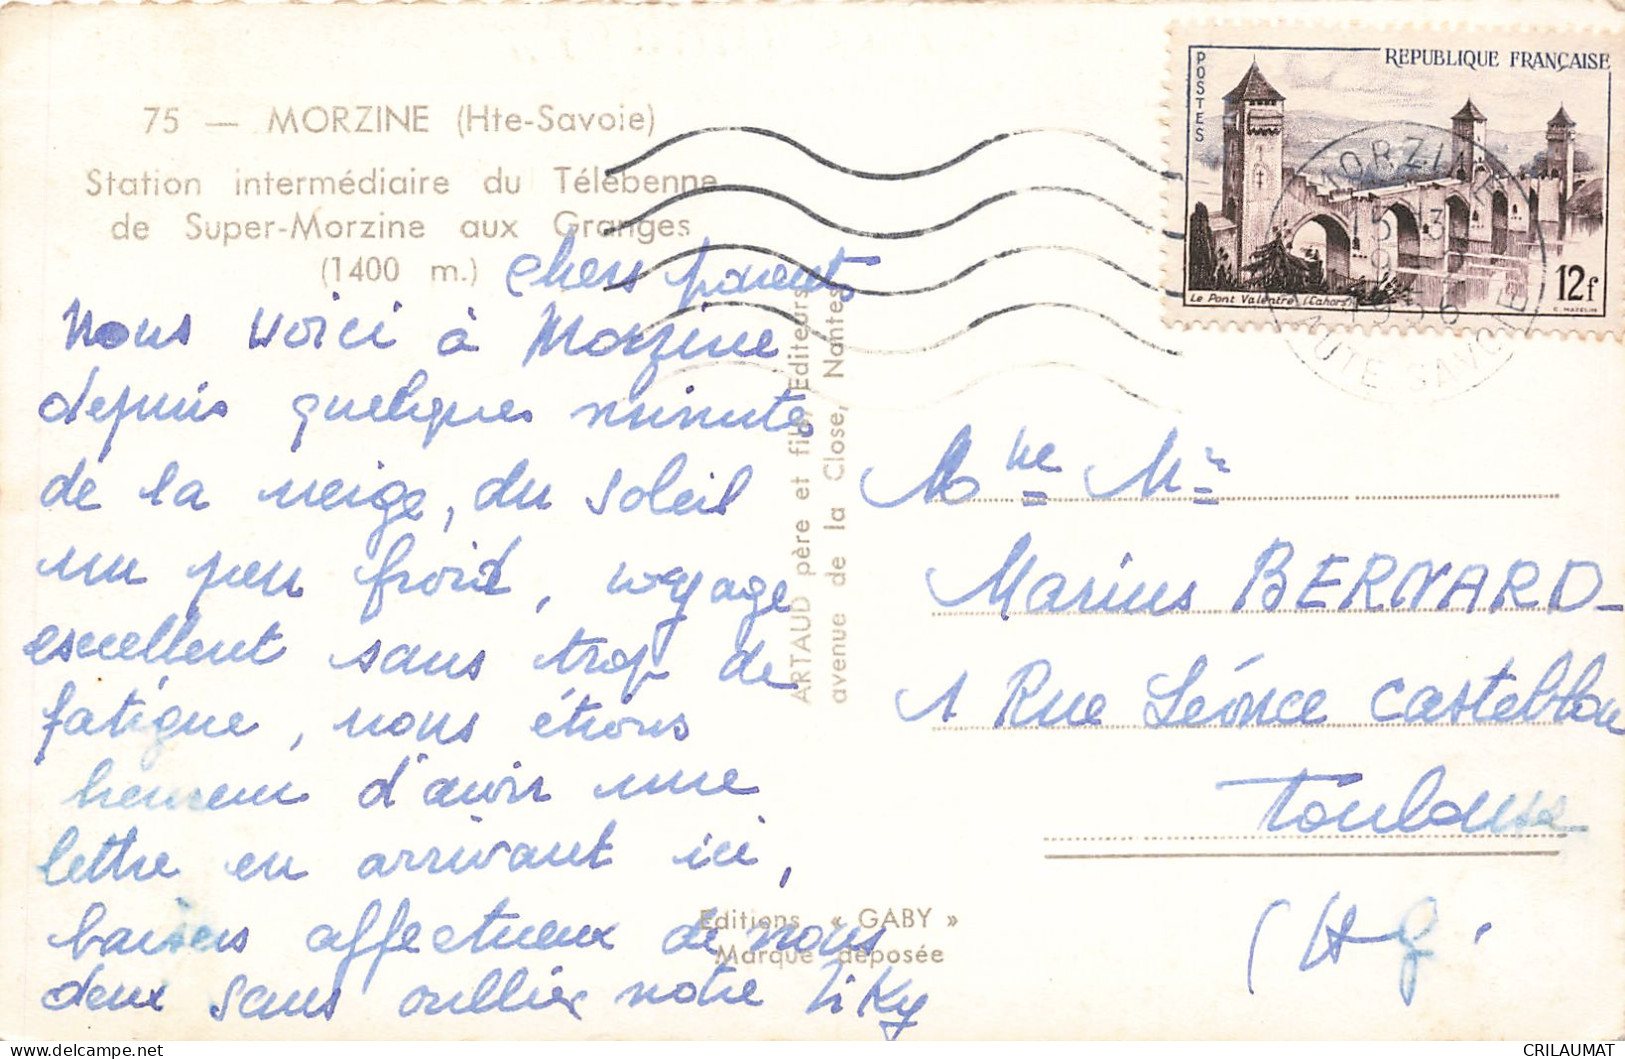 75 — MORZINE (Hte-Savoie)
Station intermédiaire du Télébenne
de Super-Morzine aux Granges
(1400 m.)
chers parents
Nous voici à Morzine
depuis quelques minutes
de la neige, du soleil
un peu froid, voyage
excellent sans trop de
fatigue, nous étions
heureux d'avoir une
lettre en arrivant ici,
baisers affectueux de nous
deux sans oublier notre Kiky
ARTAUD père et fils, Editeurs
avenue de la Close, Nantes
Editions « GABY »
Marque déposée
POSTES
REPUBLIQUE FRANÇAISE
Le Pont Valentré (Cahors)
12f
MORZINE
HAUTE SAVOIE
Mme Mr
Marius BERNARD
1 Rue Léonce Castelblou
Toulouse
(H G.
CRILAUMAT